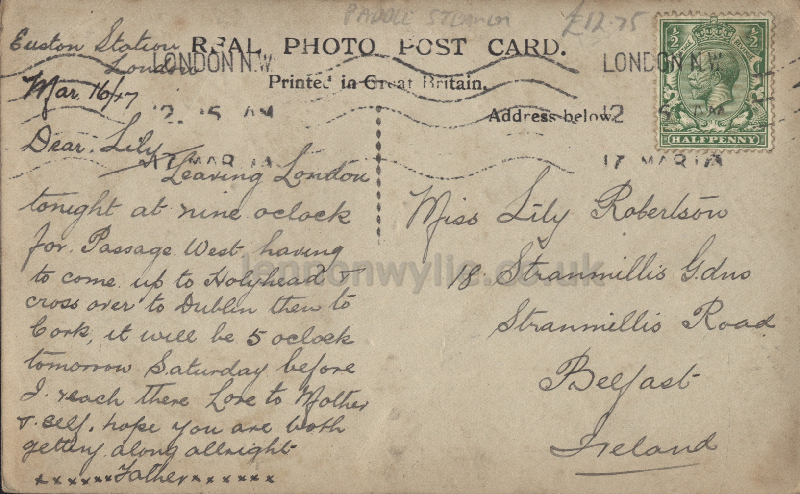 PADDLE STEAMER £12.75
REAL PHOTO POST CARD.
Printed in Great Britain.
Address below.
LONDON N.W
12.15 AM
17 MAR 17
LONDON N.W
12
17 MAR 17
½ ½
HALFPENNY
Euston Station
London
Mar. 16/17
Dear. Lily
Leaving London
tonight at nine oclock
for. Passage West. having
to come up to Holyhead &
cross over to Dublin then to
Cork, it will be 5 oclock
tomorrow Saturday before
I. reach there Love to Mother
& self. hope you are both
getting along allright
x x x x x x Father x x x x x x
Miss Lily Robertson
18 Stranmillis Gdns
Stranmillis Road
Belfast
Ireland
lennonwylie.co.uk